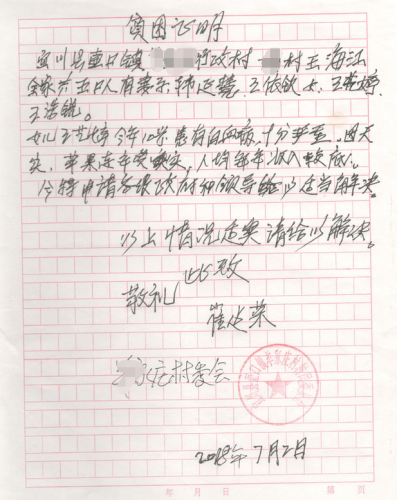 贫困证明
宜川县壶口镇 行政村 村 王海江
全家共五口人有妻子韩延 王依 女 王艺婷
王浩锐。
女儿王艺婷今年10岁患有白血病，十分严重，因天
灾，苹果连年受 ，人均每年收入较底。
今特申请各级政府和领导给以适当解决。
以上情况是实请给以解决。
此致
敬礼
崔 荣
庄村委会
2018年7月2日
年 月 日 第 页